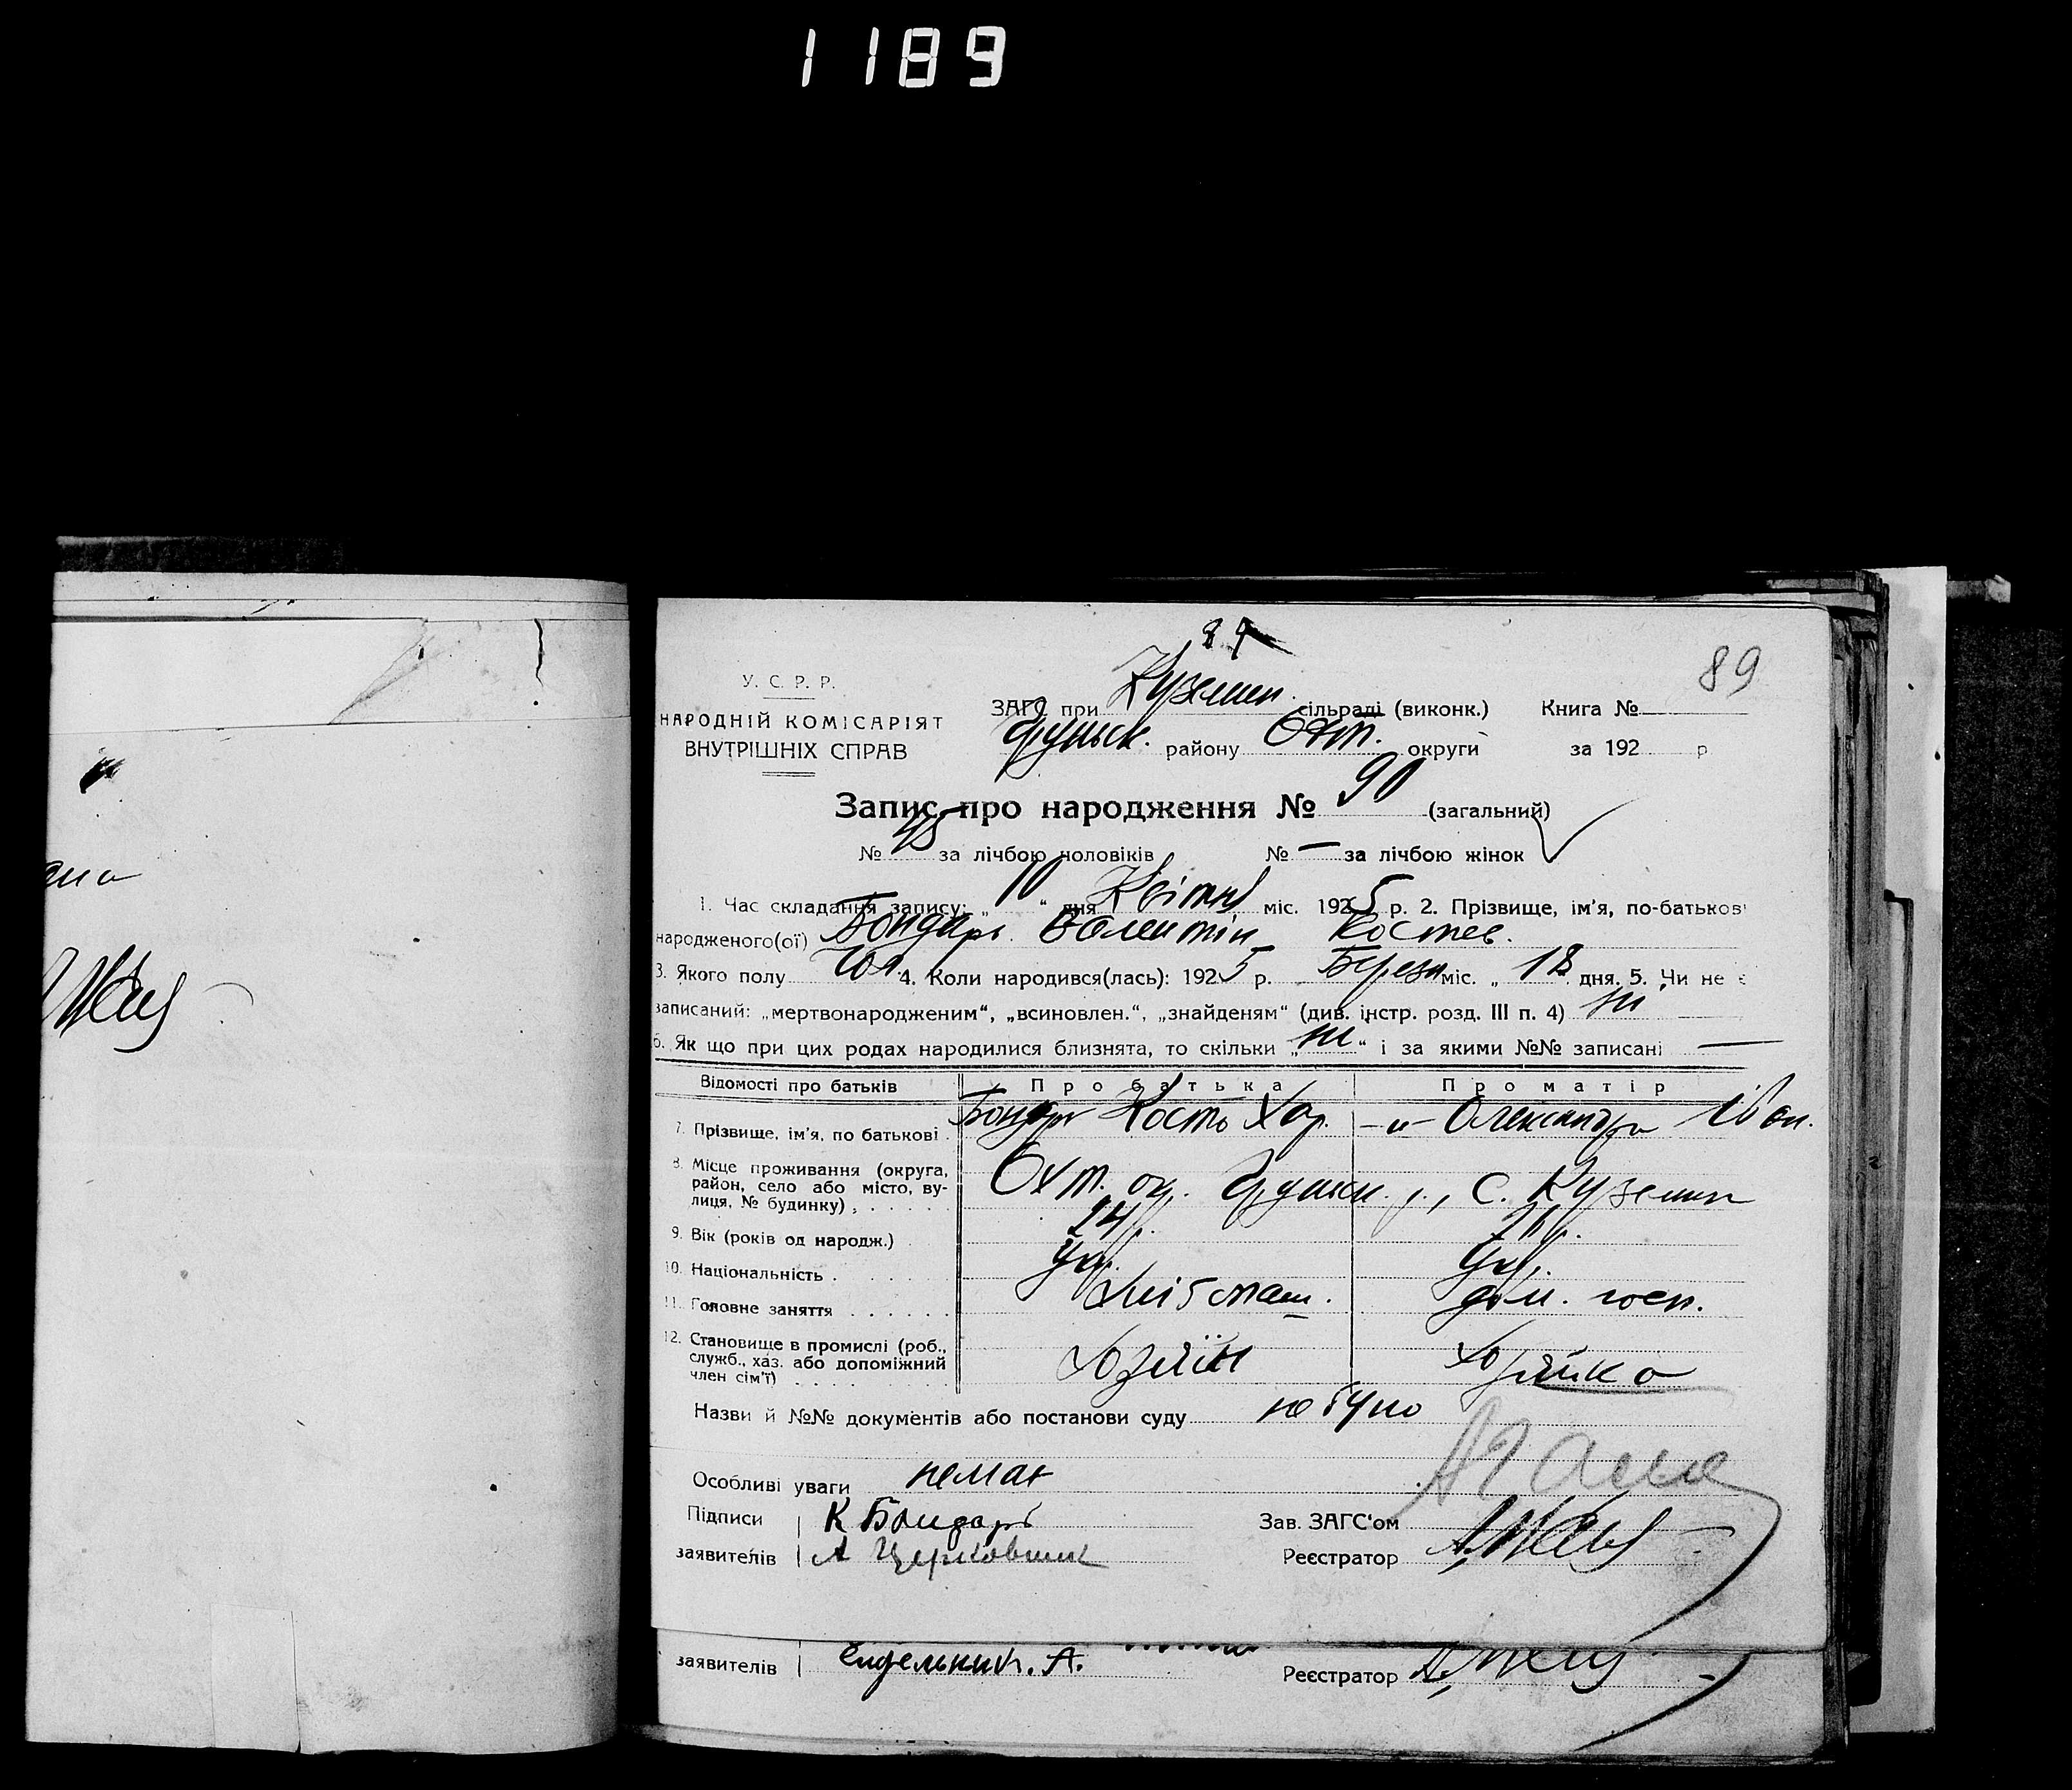 1189
89
89
У. С. Р. Р.
НАРОДНІЙ КОМІСАРІЯТ
ВНУТРІШНІХ СПРАВ
ЗАГС при Куземен. сільраді (виконк.) Книга №
Груньск. району Охт. округи за 192 р
Запис про народження № 90 (загальний)
№ 45 за лічбою чоловіків № — за лічбою жінок
1. Час складання запису: „10“ дня Квітня міс. 1925 р. 2. Прізвище, ім'я, по-батькові
народженого(ої) Бондарь Валентін Костев.
3. Якого полу Чол. 4. Коли народився(лась): 1925 р. Березн міс. „18 дня. 5. Чи не є
записаний: „мертвонародженим“, „всиновлен.“, „знайденям“ (див. інстр. розд. III п. 4) ні
6. Як що при цих родах народилися близнята, то скільки „ні“ і за якими №№ записані —
Відомості про батьків Про батька Про матір
7. Прізвище, ім'я, по батькові . Бондарь Кость Хар. –„– Олександра Іван.
8. Місце проживання (округа,
район, село або місто, ву-
лиця, № будинку) . . . . . . Охт. окр. Груньск. р., с. Куземин
9. Вік (років од народж.) 24 р. 21 р.
10. Національність . . . . . . . Укр. Укр.
11. Головне заняття . . . . . . Хлібопаш. дом. госп.
12. Становище в промислі (роб.,
служб., хаз. або допоміжний
член сім'ї) . . . . . . . . . Хозяїн Хозяйка
Назви й №№ документів або постанови суду не було
Особливі уваги немає
Підписи К Бондарь Зав. ЗАГС'ом
заявителів А Церковник Реєстратор
заявителів А. Реєстратор